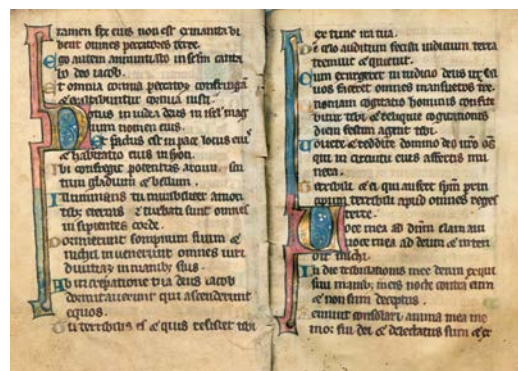 ramen fex eius non est exinanita bi
bent omnes peccatores terre.
Ego autem annuntiabo in sclm canta
bo deo iacob.
Et omnia cornua peccatoꝝ confringā
& exaltabuntur cornua iusti.
Notus in iudea deus in isrl mag
num nomen eius.
Et factus est in pace locus eiꝰ
& habitatio eius in syon.
Ibi confregit potentias arcuum. scu
tum gladium & bellum.
Illuminans tu mirabiliter a mon
tibꝫ eternis & turbati sunt omnes
insipientes corde.
Dormierunt sompnum suum &
nichil inuenerunt omnes uiri
diuitiaꝝ in manibꝫ suis.
Ab increpatione tua deus iacob
dormitauerunt qui ascenderunt
equos.
Tu terribilis es & quis resistet tibi
ex tunc ira tua.
De celo auditum fecisti iudicium terra
tremuit & quieuit.
Cum exurgeret in iudicio deus ut sal
uos faceret omnes mansuetos tre.
cogitatio hominis confite
bitur tibi & reliquie cogitationis
diem festum agent tibi.
Uouete & reddite domino deo uro oēs
qui in circuitu eius affertis mu
nera.
Terribili & ei qui aufert spm prin
cipum terribili apud omnes reges
terre.
Uoce mea ad dnm clamaui
uoce mea ad deum & inten
dit michi.
In die tribulationis mee deum exqui
siui manibꝫ meis nocte contra eum
& non sum deceptus.
Rennuit consolari anima mea me
mor fui dei & delectatus sum & ex